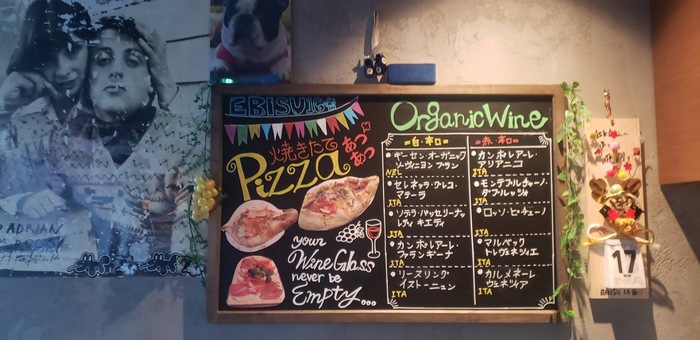 EBISU16番
焼きたて
あつ
あつ
Pizza
your
Wine Glass
never be
Empty...
Organic Wine
白・辛口
ギーセン・オーガニック
ソーヴィニヨン ブラン
NZL
セレネッラ・クレコ・
マテーラ
ITA
レディ キエティ
ITA
カンポレアーレ・
ファランギーナ
ITA
リースリング
イストーニュン
ITA
赤・辛口
カンポレアーレ・
アリアニーコ
ITA
モンテプルチャーノ・
ダブルッツオ
ITA
ロッソ・ピチェーノ
ITA
マルベック
トレヴェネツィエ
ITA
カルメネーレ
ヴェネツィア
ITA
ADRIAN
17
EBISU 16番